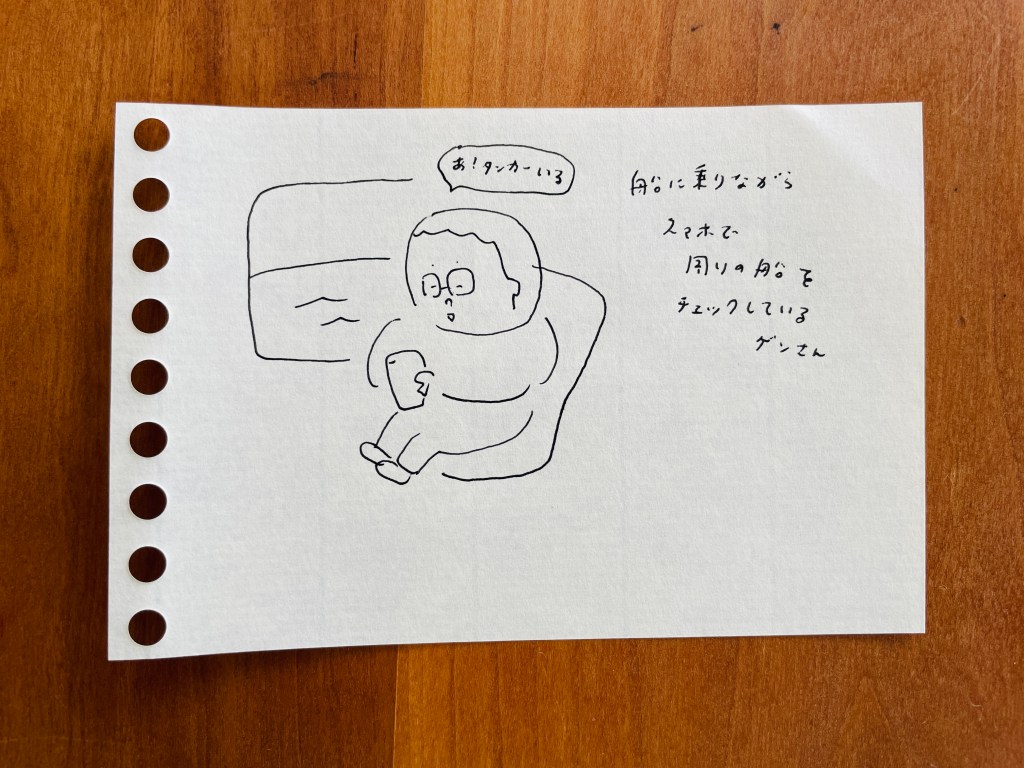 あ!タンカーいる
船に乗りながら
スマホで
周りの船を
チェックしている
ゲンさん